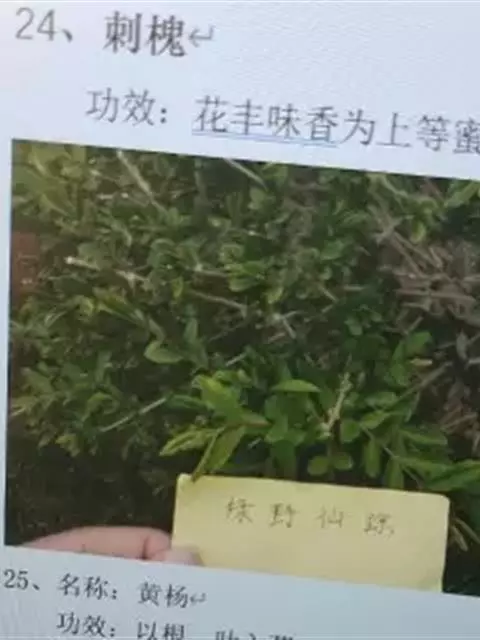 24、刺槐
功效：花丰味香为上等蜜
绿野仙踪
25、名称：黄杨
功效：以根